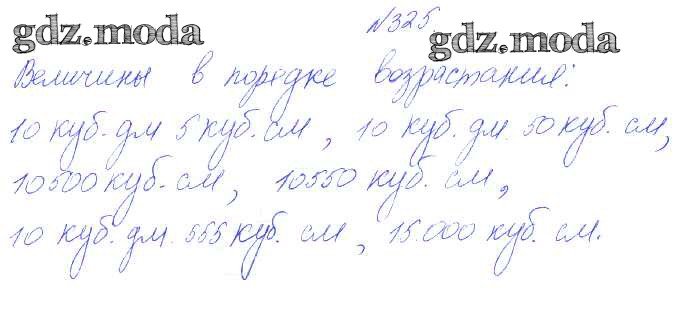 №325
gdz.moda gdz.moda
Величины в порядке возрастания:
10 куб. дм 5 куб. см, 10 куб. дм. 50 куб. см,
10500 куб. см, 10550 куб. см,
10 куб. дм. 555 куб. см, 15.000 куб. см.